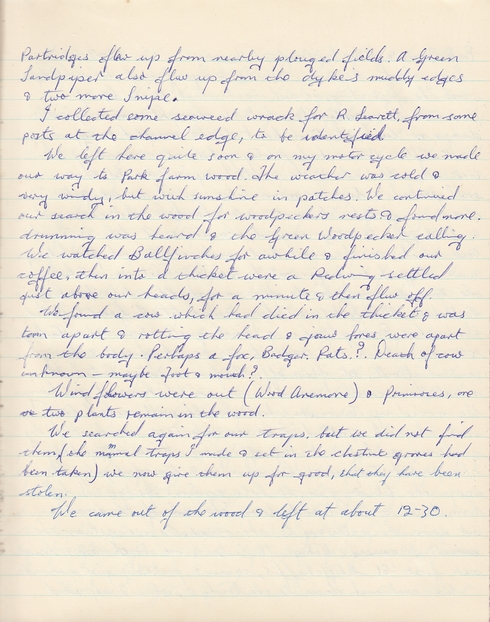 Partridges flew up from nearby plouged fields. A Green
Sandpiper also flew up from the dyke's muddy edges
& two more Snipe.
I collected some seaweed wrack for R. from some
posts at the channel edge, to be identified.
We left here quite soon & on my motor cycle we made
our way to Park farm wood. The weather was cold &
very windy, but with sunshine in patches. We continued
our search in the wood for woodpeckers nests & found more.
drumming was heard & the Green Woodpecker calling.
We watched Bullfinches for awhile & finished our
coffee, then into a thicket were a Redwing settled
just above our heads, for a minute & then flew off.
We found a cow which had died in the thicket & was
torn apart & rotting the head & jaw bones were apart
from the body. Perhaps a fox, Badger. Rats.?. Death of cow
unknown – maybe foot & mouth?.
Wind flowers were out (Wood Anemone) & Primroses, one
or two plants remain in the wood.
We searched again for our traps, but we did not find
them (the mammal traps I made & set in the chestnut groves had
been taken) we now give them up for good, that they have been
stolen.
We came out of the wood & left at about 12-30.